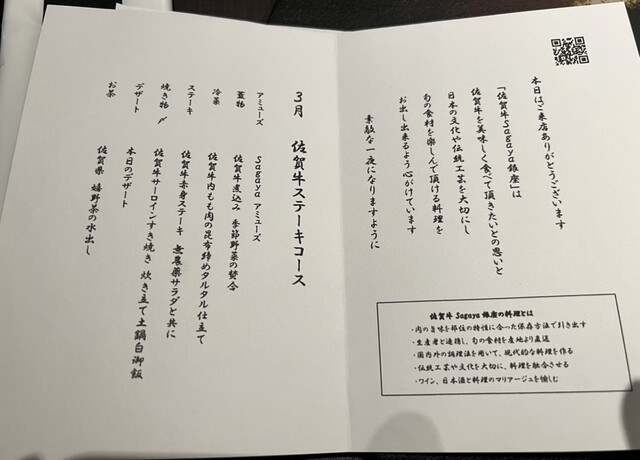 本日はご来店ありがとうございます
「佐賀牛Sagaya銀座」は
佐賀牛を美味しく食べて頂きたいとの思いと
日本の文化や伝統工芸を大切にし
旬の食材を楽しんで頂ける料理を
お出し出来るよう心がけています
素敵な一夜になりますように
佐賀牛 Sagaya 銀座の料理とは
・肉の旨味を部位の特性に合った保存方法で引き出す
・生産者と連携し、旬の食材を産地より直送
・国内外の調理法を用いて、現代的な料理を作る
・伝統工芸や文化を大切に、料理を融合させる
・ワイン、日本酒と料理のマリアージュを愉しむ
3月 佐賀牛ステーキコース
アミューズ Sagaya アミューズ
蓋物 佐賀牛煮込み 季節野菜の餐合
冷菜 佐賀牛内もも肉の昆布締めタルタル仕立て
ステーキ 佐賀牛赤身ステーキ 無農薬サラダと共に
焼き物〆 佐賀牛サーロインすき焼き 炊き立て土鍋白御飯
デザート 本日のデザート
お茶 佐賀県 嬉野茶の水出し